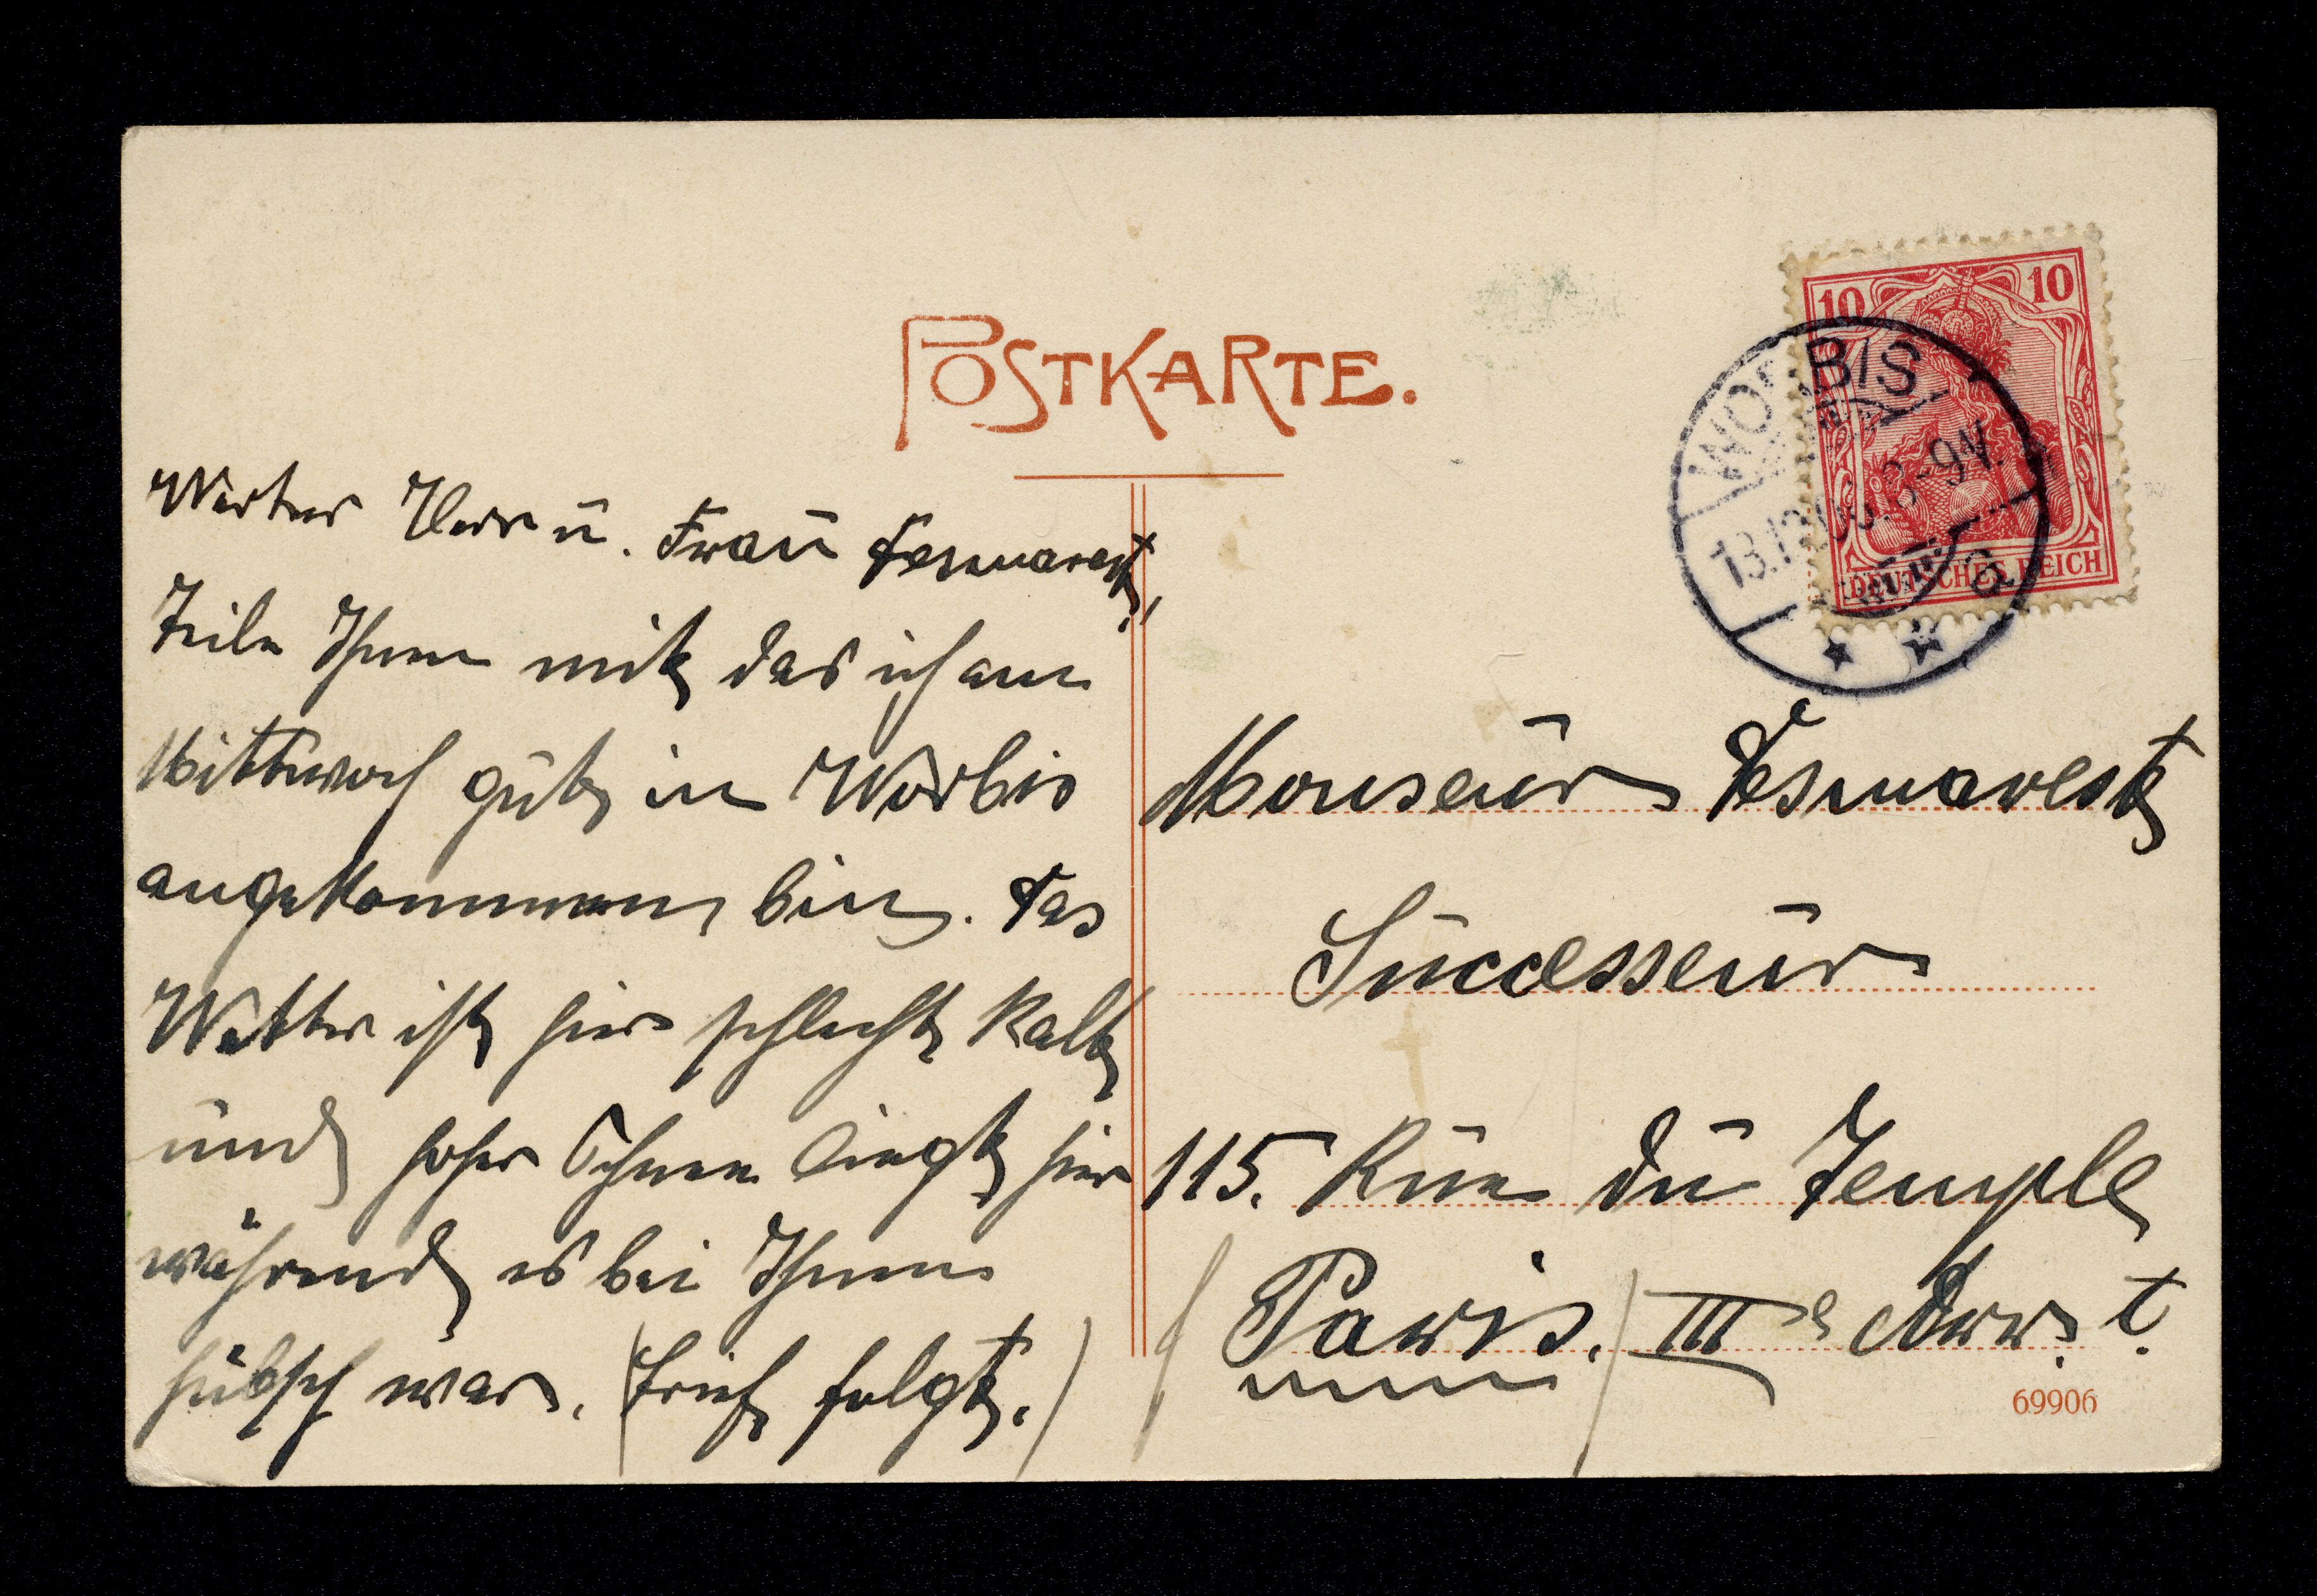 POSTKARTE.
10 10
DEUTSCHES REICH
WORBIS
13.12.06. 8-9V.
a
Werter Herr u. Frau Desmarest,
Teile Ihnen mit das ich am
Mittwoch gut in Worbis
angekommen bin. Das
Wetter ist hier schlecht kalt
und hoher Schnee liegt hier
während es bei Ihnen
hübsch war. (Brief folgt.)
Monseur Desmarest
Successeur
115. Rue du Temple
(Paris.) IIIe Arr. t.
69906